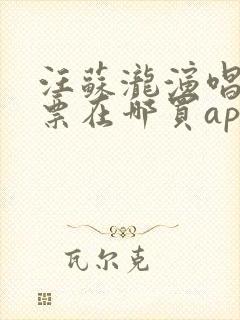 汪蘇瀧演唱
票在哪買ap
瓦尔克